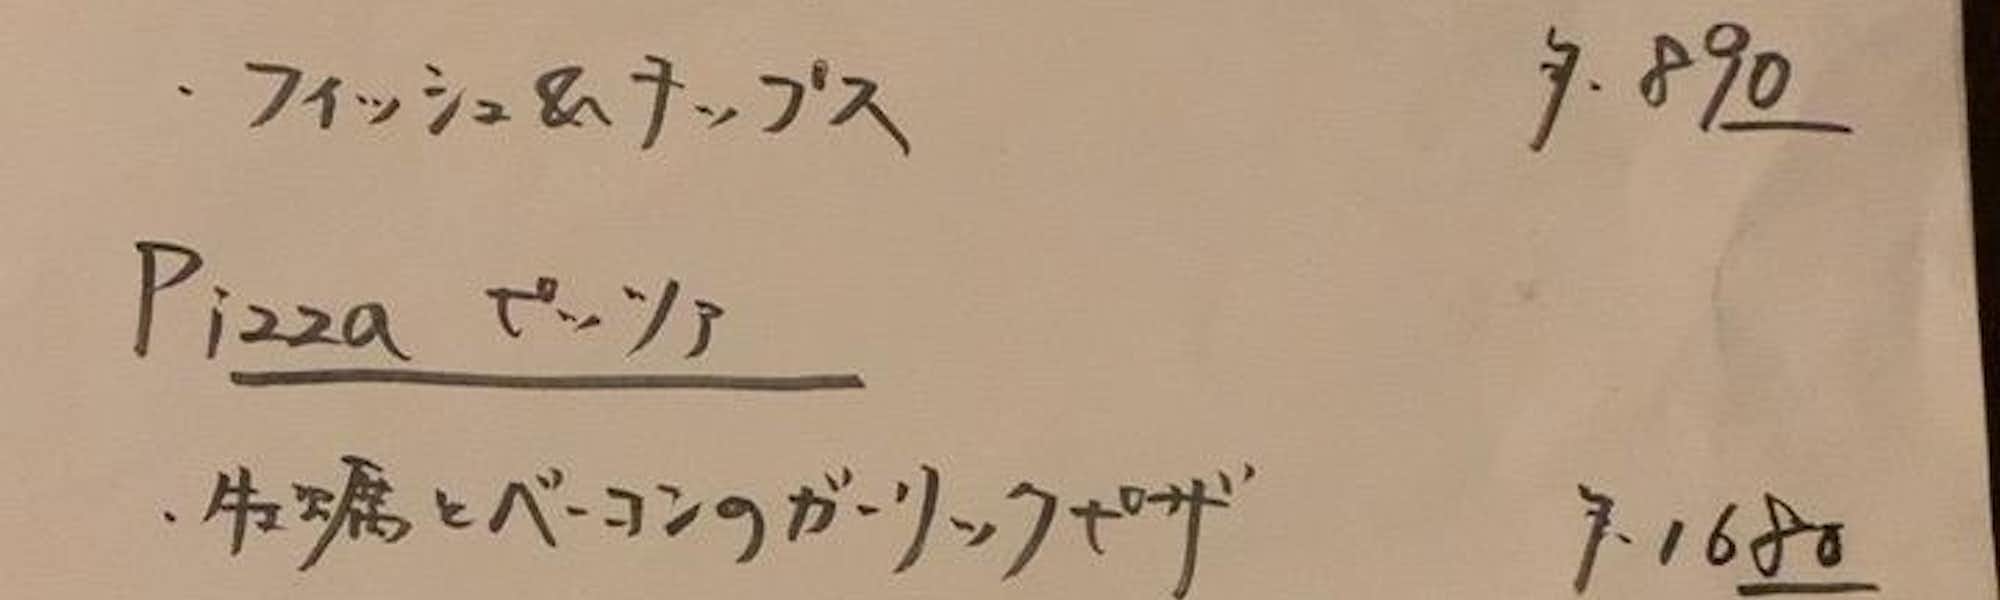 ・フィッシュ&チップス ¥.890
Pizza ピッツァ
・牡蠣とベーコンのガーリックピザ ¥.1680